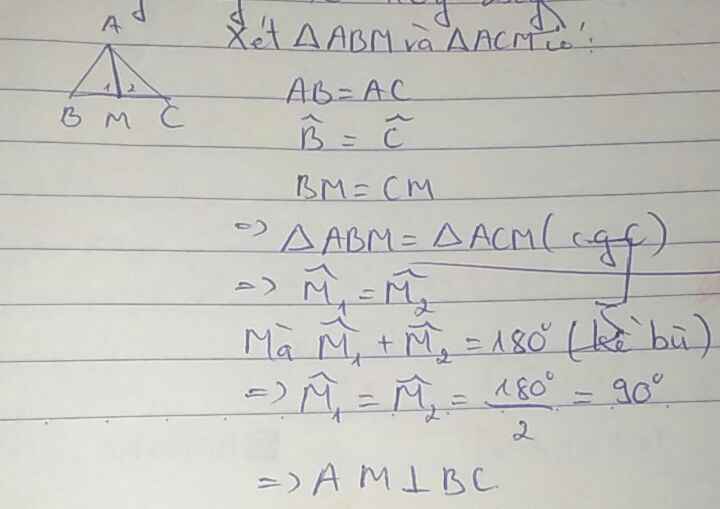 A
1 2
B M C
Xét ΔABM và ΔACM có:
AB = AC
B̂ = Ĉ
BM = CM
=> ΔABM = ΔACM (cgc)
=> M̂₁ = M̂₂
Mà M̂₁ + M̂₂ = 180° (kề bù)
=> M̂₁ = M̂₂ = 180°/2 = 90°
=> AM ⊥ BC